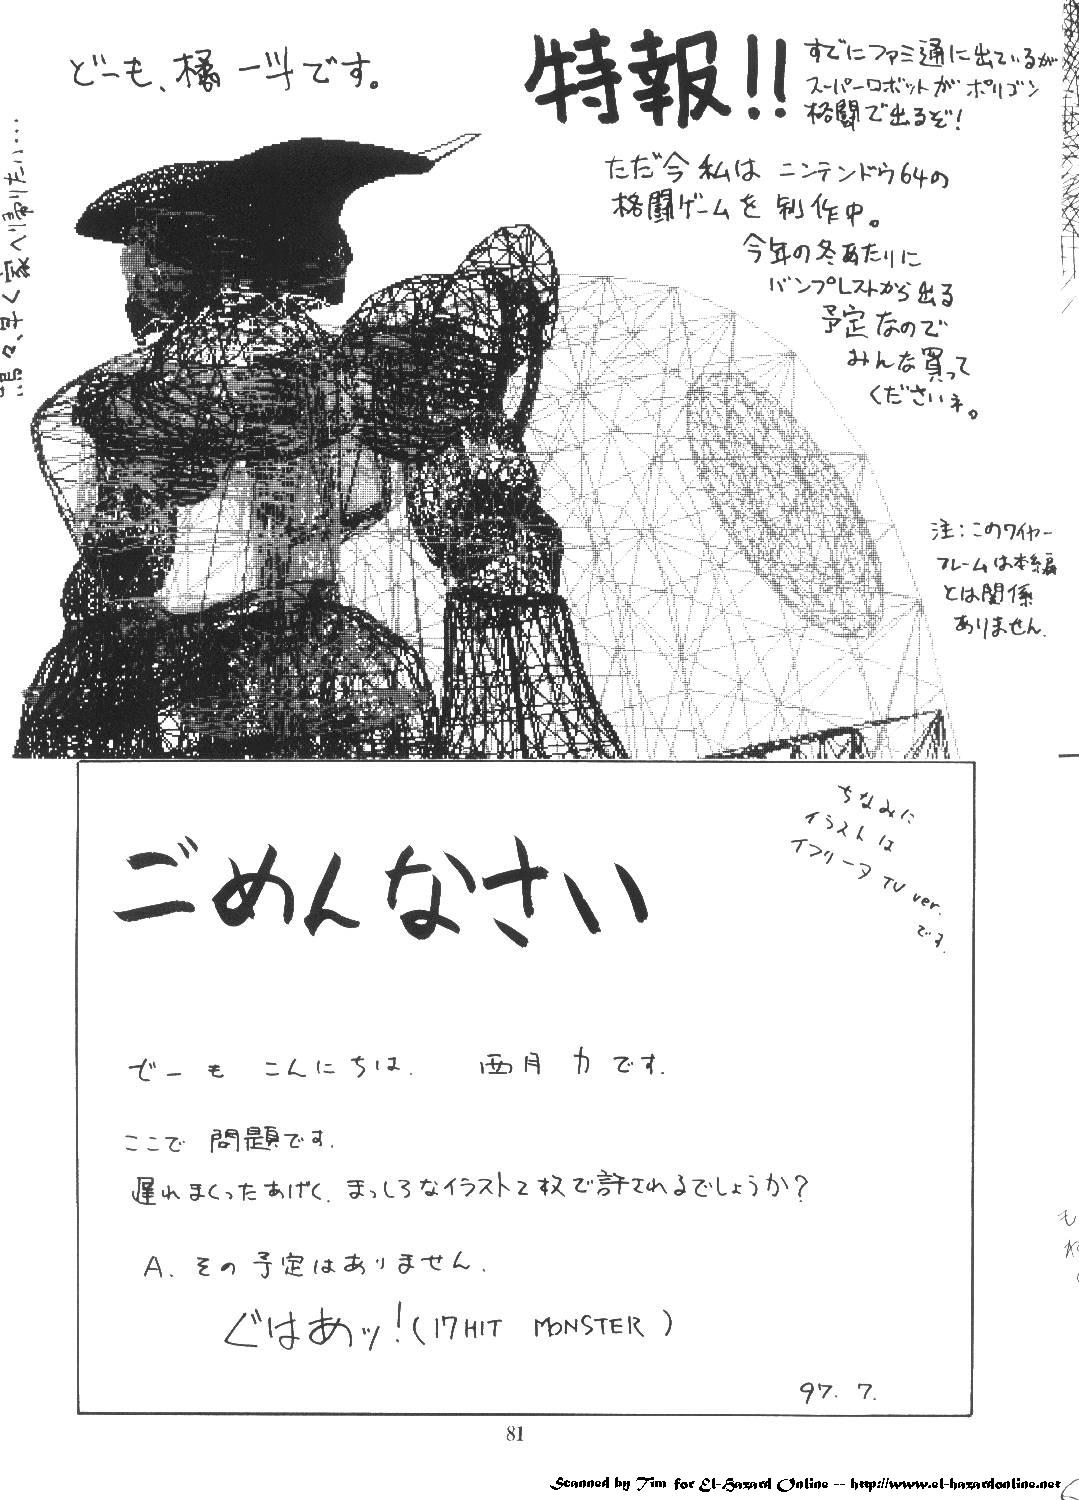 どーも、橘 一斗です。
特報!!
すでにファミ通に出ているが
スーパーロボットがポリゴン
格闘で出るぞ!
ただ今 私は ニンテンドウ64の
格闘ゲームを 制作中。
今年の冬あたりに
バンプレストから出る
予定なので
みんな買って
くださいネ。
注:このワイヤー
フレームは本編
とは関係
ありません.
ちなみに
イラスト は
イフリータ TV ver.
です.
ごめんなさい
どーも こんにちは. 西月 力 です.
ここで 問題です.
遅れまくったあげく、まっしろなイラスト2枚で許されるでしょうか?
A. その予定はありません.
ぐはあッ!(17HIT MONSTER)
97. 7.
81
Scanned by Tim for El-Hazard Online -- http://www.el-hazardonline.net